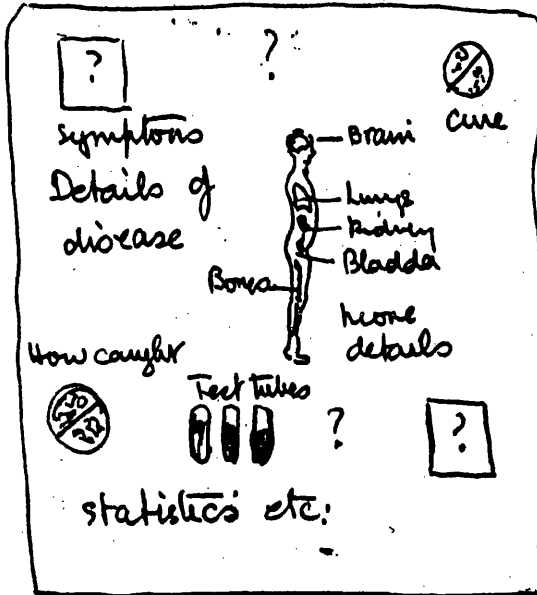 ?
?
cure
symptons
Details of
disease
Brain
Lungs
Kidney
Bladda
Bones
more
details
How caught
Test tubes
?
?
statistics etc.